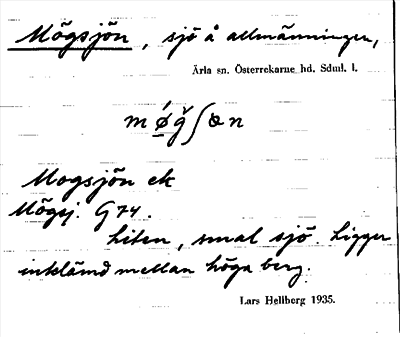 Mögsjön, sjö å allmänningen,
Ärla sn. Österrekarne hd. Sdml. l.
mǿğʃɷn
Mogsjön ek
Mögsj. G 74.
Liten, smal sjö. Ligger
inklämd mellan höga berg.
Lars Hellberg 1935.